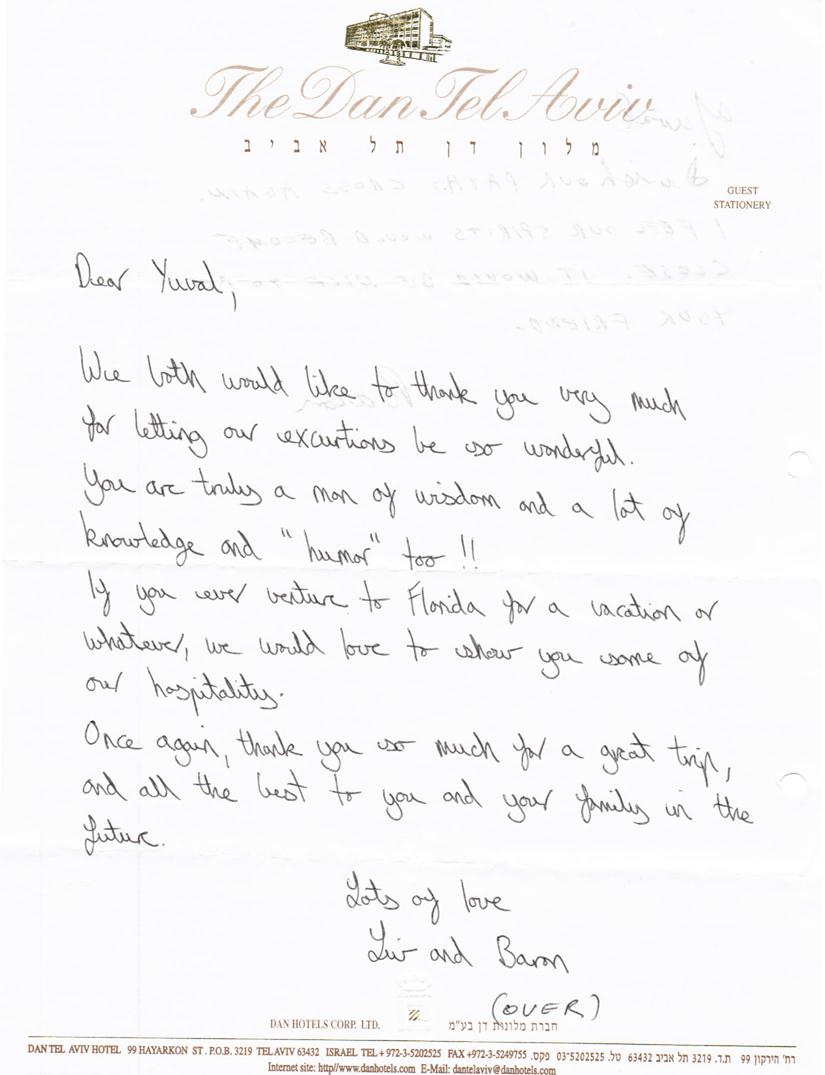 The Dan Tel Aviv
מלון דן תל אביב
GUEST
STATIONERY
Dear Yuval,
Wee both would like to thank you very much
for letting our excurtions be so wonderful.
You are truly a man of wisdom and a lot of
knowledge and "humor" too !!
If you ever venture to Florida for a vacation or
whatever, we would love to show you some of
our hospitality.
Once again, thank you so much for a great trip,
and all the best to you and your family in the
future.
Lots of love
Liv and Baron
(OVER)
DAN HOTELS CORP. LTD. חברת מלונות דן בע"מ
DAN TEL AVIV HOTEL 99 HAYARKON ST. P.O.B. 3219 TEL AVIV 63432 ISRAEL TEL +972-3-5202525 FAX +972-3-5249755 רח' הירקון 99 ת.ד. 3219 תל אביב 63432 טל. 03-5202525 פקס.
Internet site: http//www.danhotels.com E-Mail: dantelaviv@danhotels.com